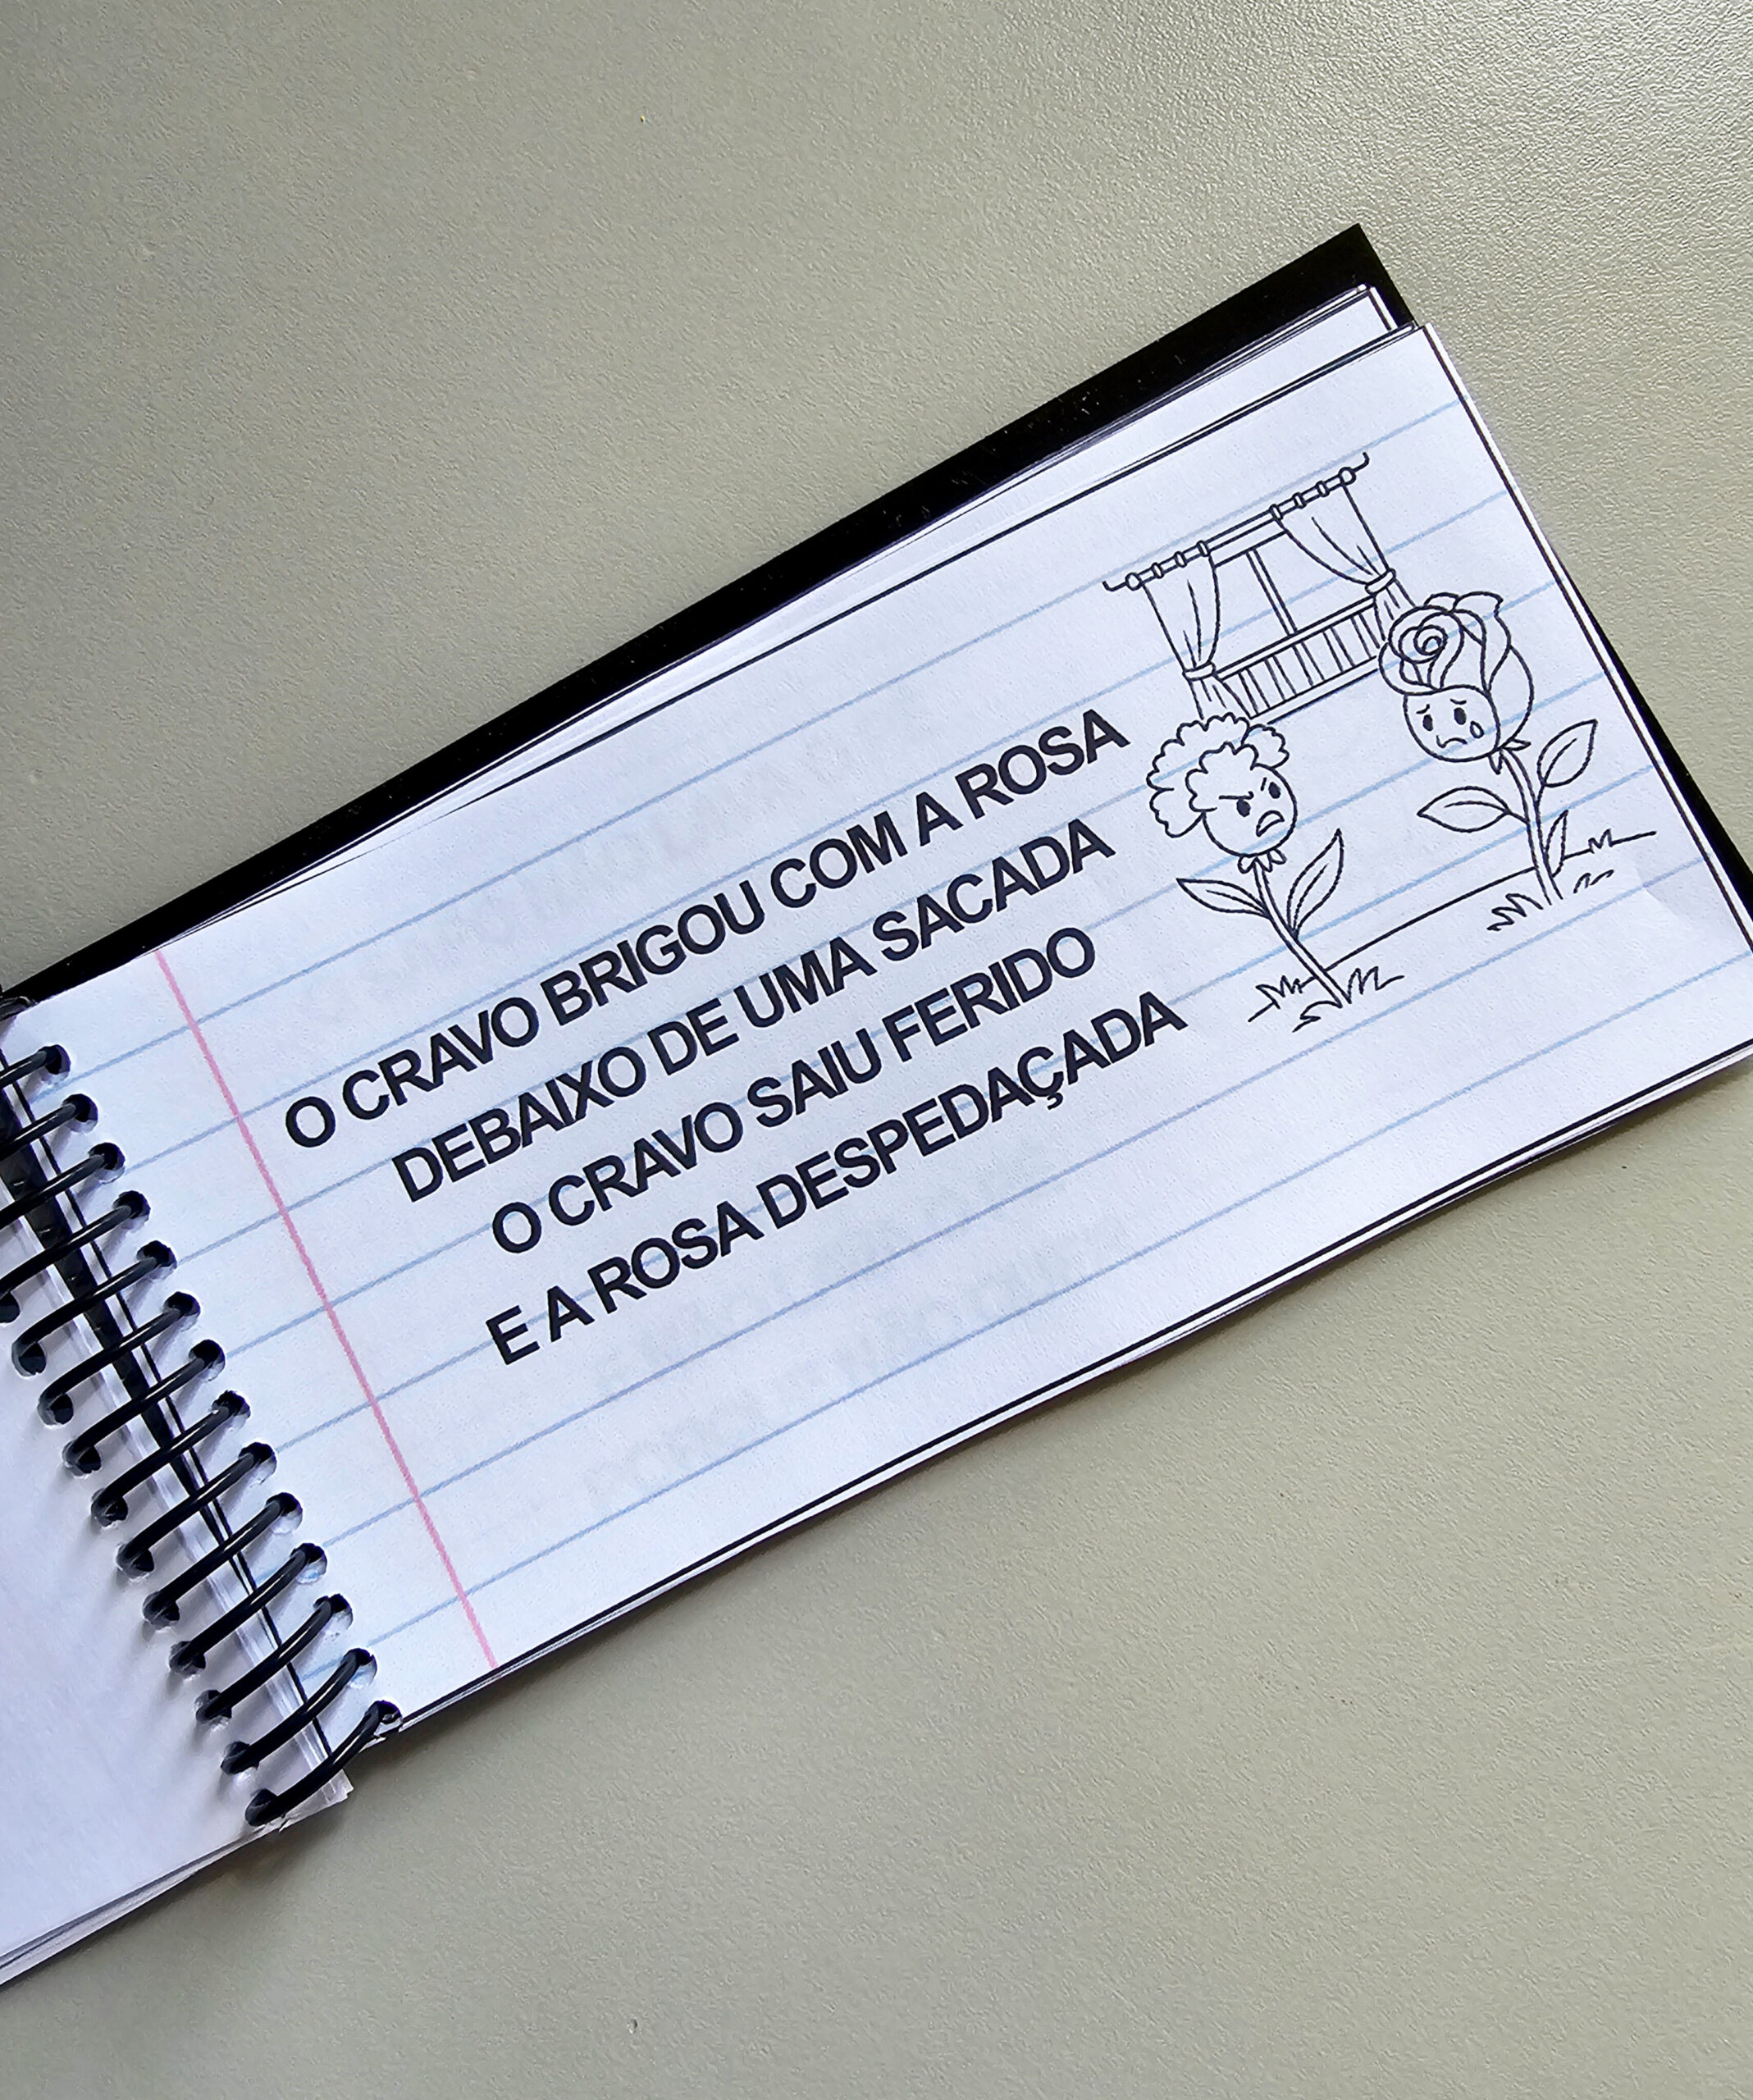 O CRAVO BRIGOU COM A ROSA
DEBAIXO DE UMA SACADA
O CRAVO SAIU FERIDO
E A ROSA DESPEDAÇADA